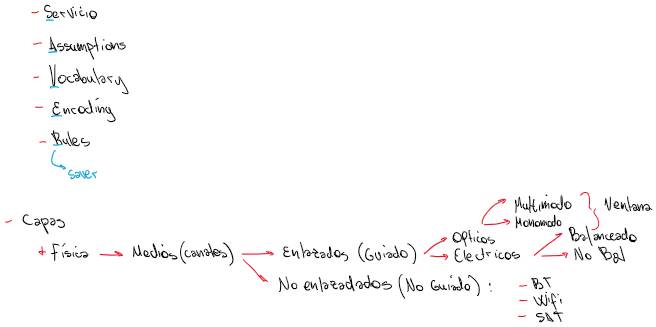 - Servicio
- Assumptions
- Vocabulary
- Encoding
- Rules
saver
- Capas
+ Física → Medios (canales) → Enlazados (Guiado) → Opticos → Multimodo } Ventana
Monomodo
Electricos → Balanceado
No Bal
No enlazadados (No Guiado) :
- BT
- Wifi
- SAT